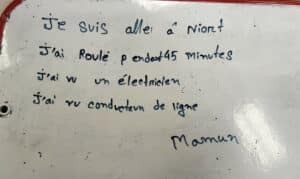 Je suis allei â Niort
J'ai Roulé pendant 45 minutes
J'ai vu un électricien
J'ai vu conducteun de ligne
Mamun